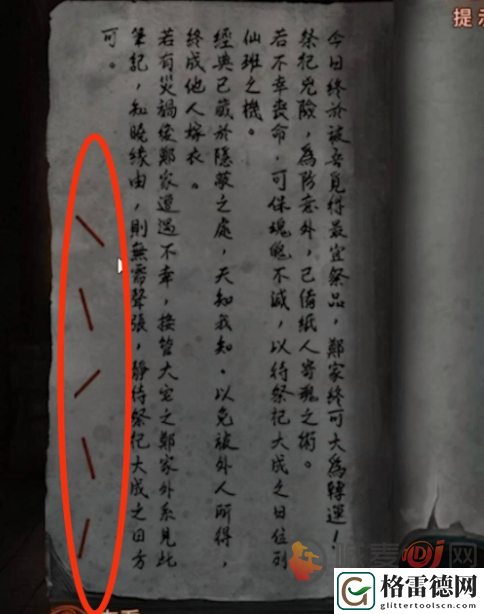 提示
今日終於被吾覓得最宜祭品，鄭家終可大為轉運！
祭祀兇險，為防意外，已備紙人寄魂之術。
若不幸喪命，可保魂魄不滅，以待祭祀大成之日位列
仙班之機。
經典已藏於隱蔽之處，天知我知。以免被外人所得，
終成他人嫁衣。
若有災禍使鄭家遭遇不幸，接管大宅之鄭家外系見此
筆記，知曉緣由，則無需聲張，靜待祭祀大成之日方
可。
查看
格雷德网
glittertoolscn.com